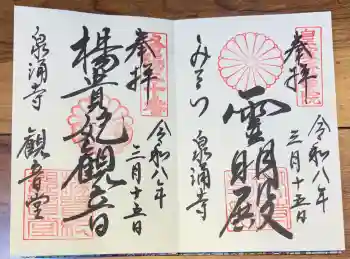 奉拝
令和八年
三月十五日
霊明殿
みてら 泉涌寺
奉拝
令和八年
三月十五日
楊貴妃観音
泉涌寺
観音堂